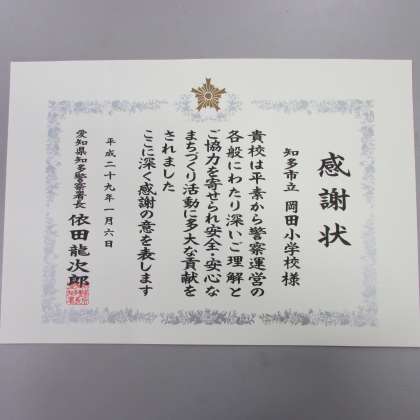 感謝状
知多市立 岡田小学校様
貴校は平素から警察運営の
各般にわたり深いご理解と
ご協力を寄せられ安全・安心な
まちづくり活動に多大な貢献を
されました
ここに深く感謝の意を表します
平成二十九年一月六日
愛知県知多警察署長 依田龍次郎